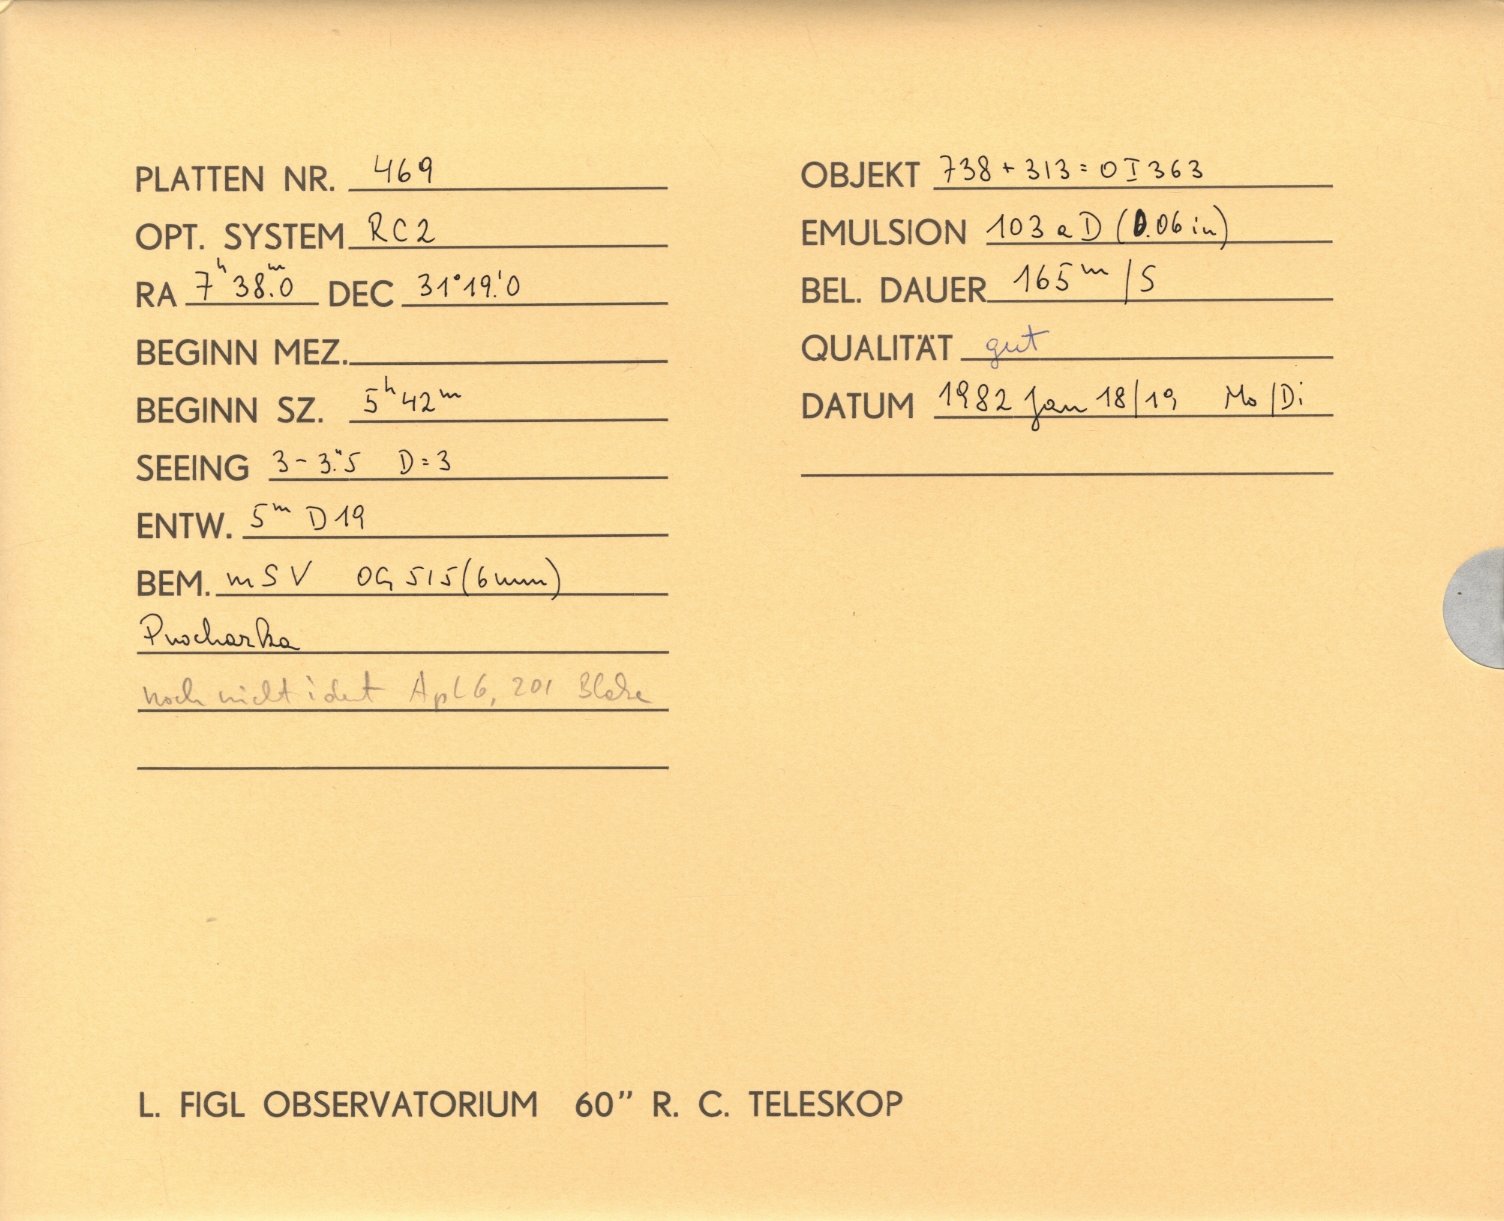 PLATTEN NR. 469
OPT. SYSTEM RC2
RA 7h 38m.0 DEC 31°19!0
BEGINN MEZ.
BEGINN SZ. 5h42m
SEEING 3-3."5 D=3
ENTW. 5m D19
BEM. mSV OG 515(6mm)
noch nicht ident ApL 6, 201
OBJEKT 738+313=OI363
EMULSION 103aD (0.06in)
BEL. DAUER 165m/S
QUALITÄT gut
DATUM 1982 Jan 18/19 Mo/Di
L. FIGL OBSERVATORIUM 60" R. C. TELESKOP